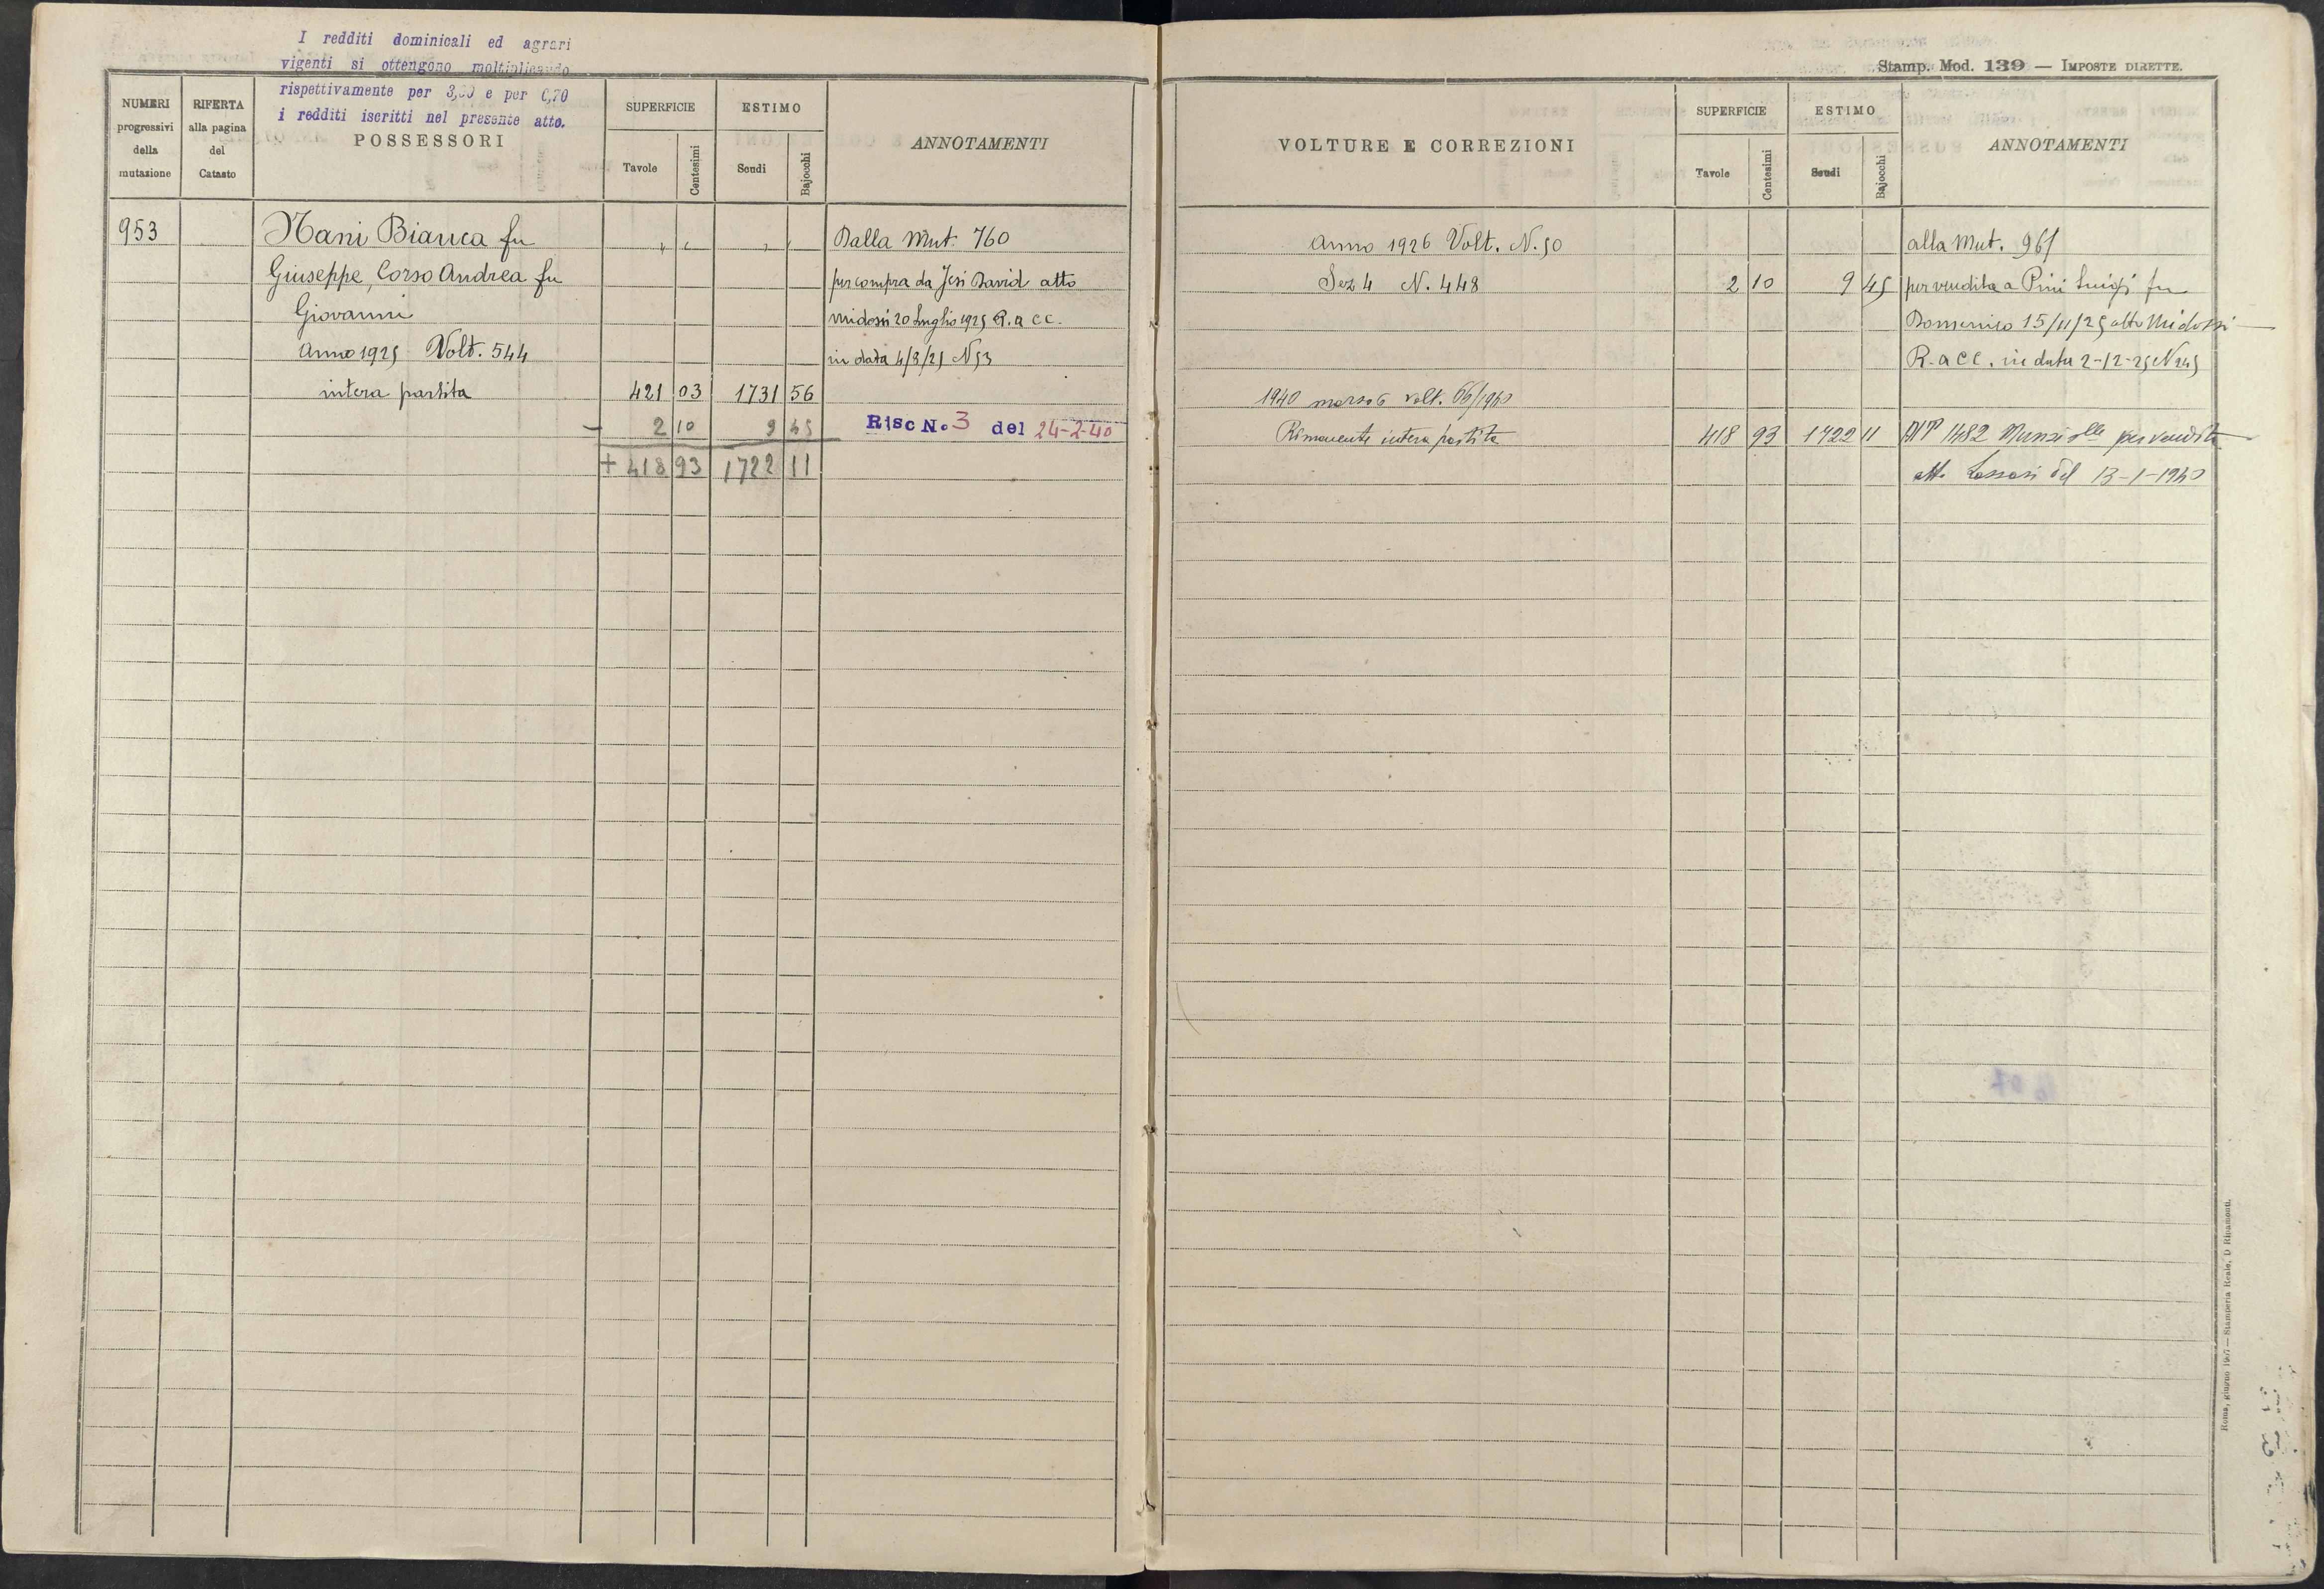 I redditi dominicali ed agrari
vigenti si ottengono moltiplicando
rispettivamente per 3,50 e per 0,70
i redditi iscritti nel presente atto.
NUMERI progressivi della mutazione
RIFERTA alla pagina del Catasto
POSSESSORI
SUPERFICIE
Tavole Centesimi
ESTIMO
Scudi Bajocchi
ANNOTAMENTI
953 Nani Bianca fu „ „ „ „ Dalla Mut. 760
Giuseppe, Corso Andrea fu per compra da Jesi David atto
Giovanni Midossi 20 Luglio 1925 R. a CC.
Anno 1925 Volt. 544 in data 4/8/25 N 53
intera partita 421 03 1731 56
- 2 10 9 45 Risc N. 3 del 24-2-40
+ 418 93 1722 11
Stamp. Mod. 139 — IMPOSTE DIRETTE.
VOLTURE E CORREZIONI
SUPERFICIE
Tavole Centesimi
ESTIMO
Scudi Bajocchi
ANNOTAMENTI
Anno 1926 Volt. N. 50 alla Mut. 961
Sez 4 N. 448 2 10 9 45 per vendita a Pini Luigi fu
Domenico 15/11/25 atto Midossi
R. a CC. in data 2-12-25 N 245
1940 marzo 6 volt. 66/1940
Rimanente intera partita 418 93 1722 11 1482 per vendita
atto del 13-1-1940
Roma, giugno 1907 — Stamperia Reale, D Ripamonti.